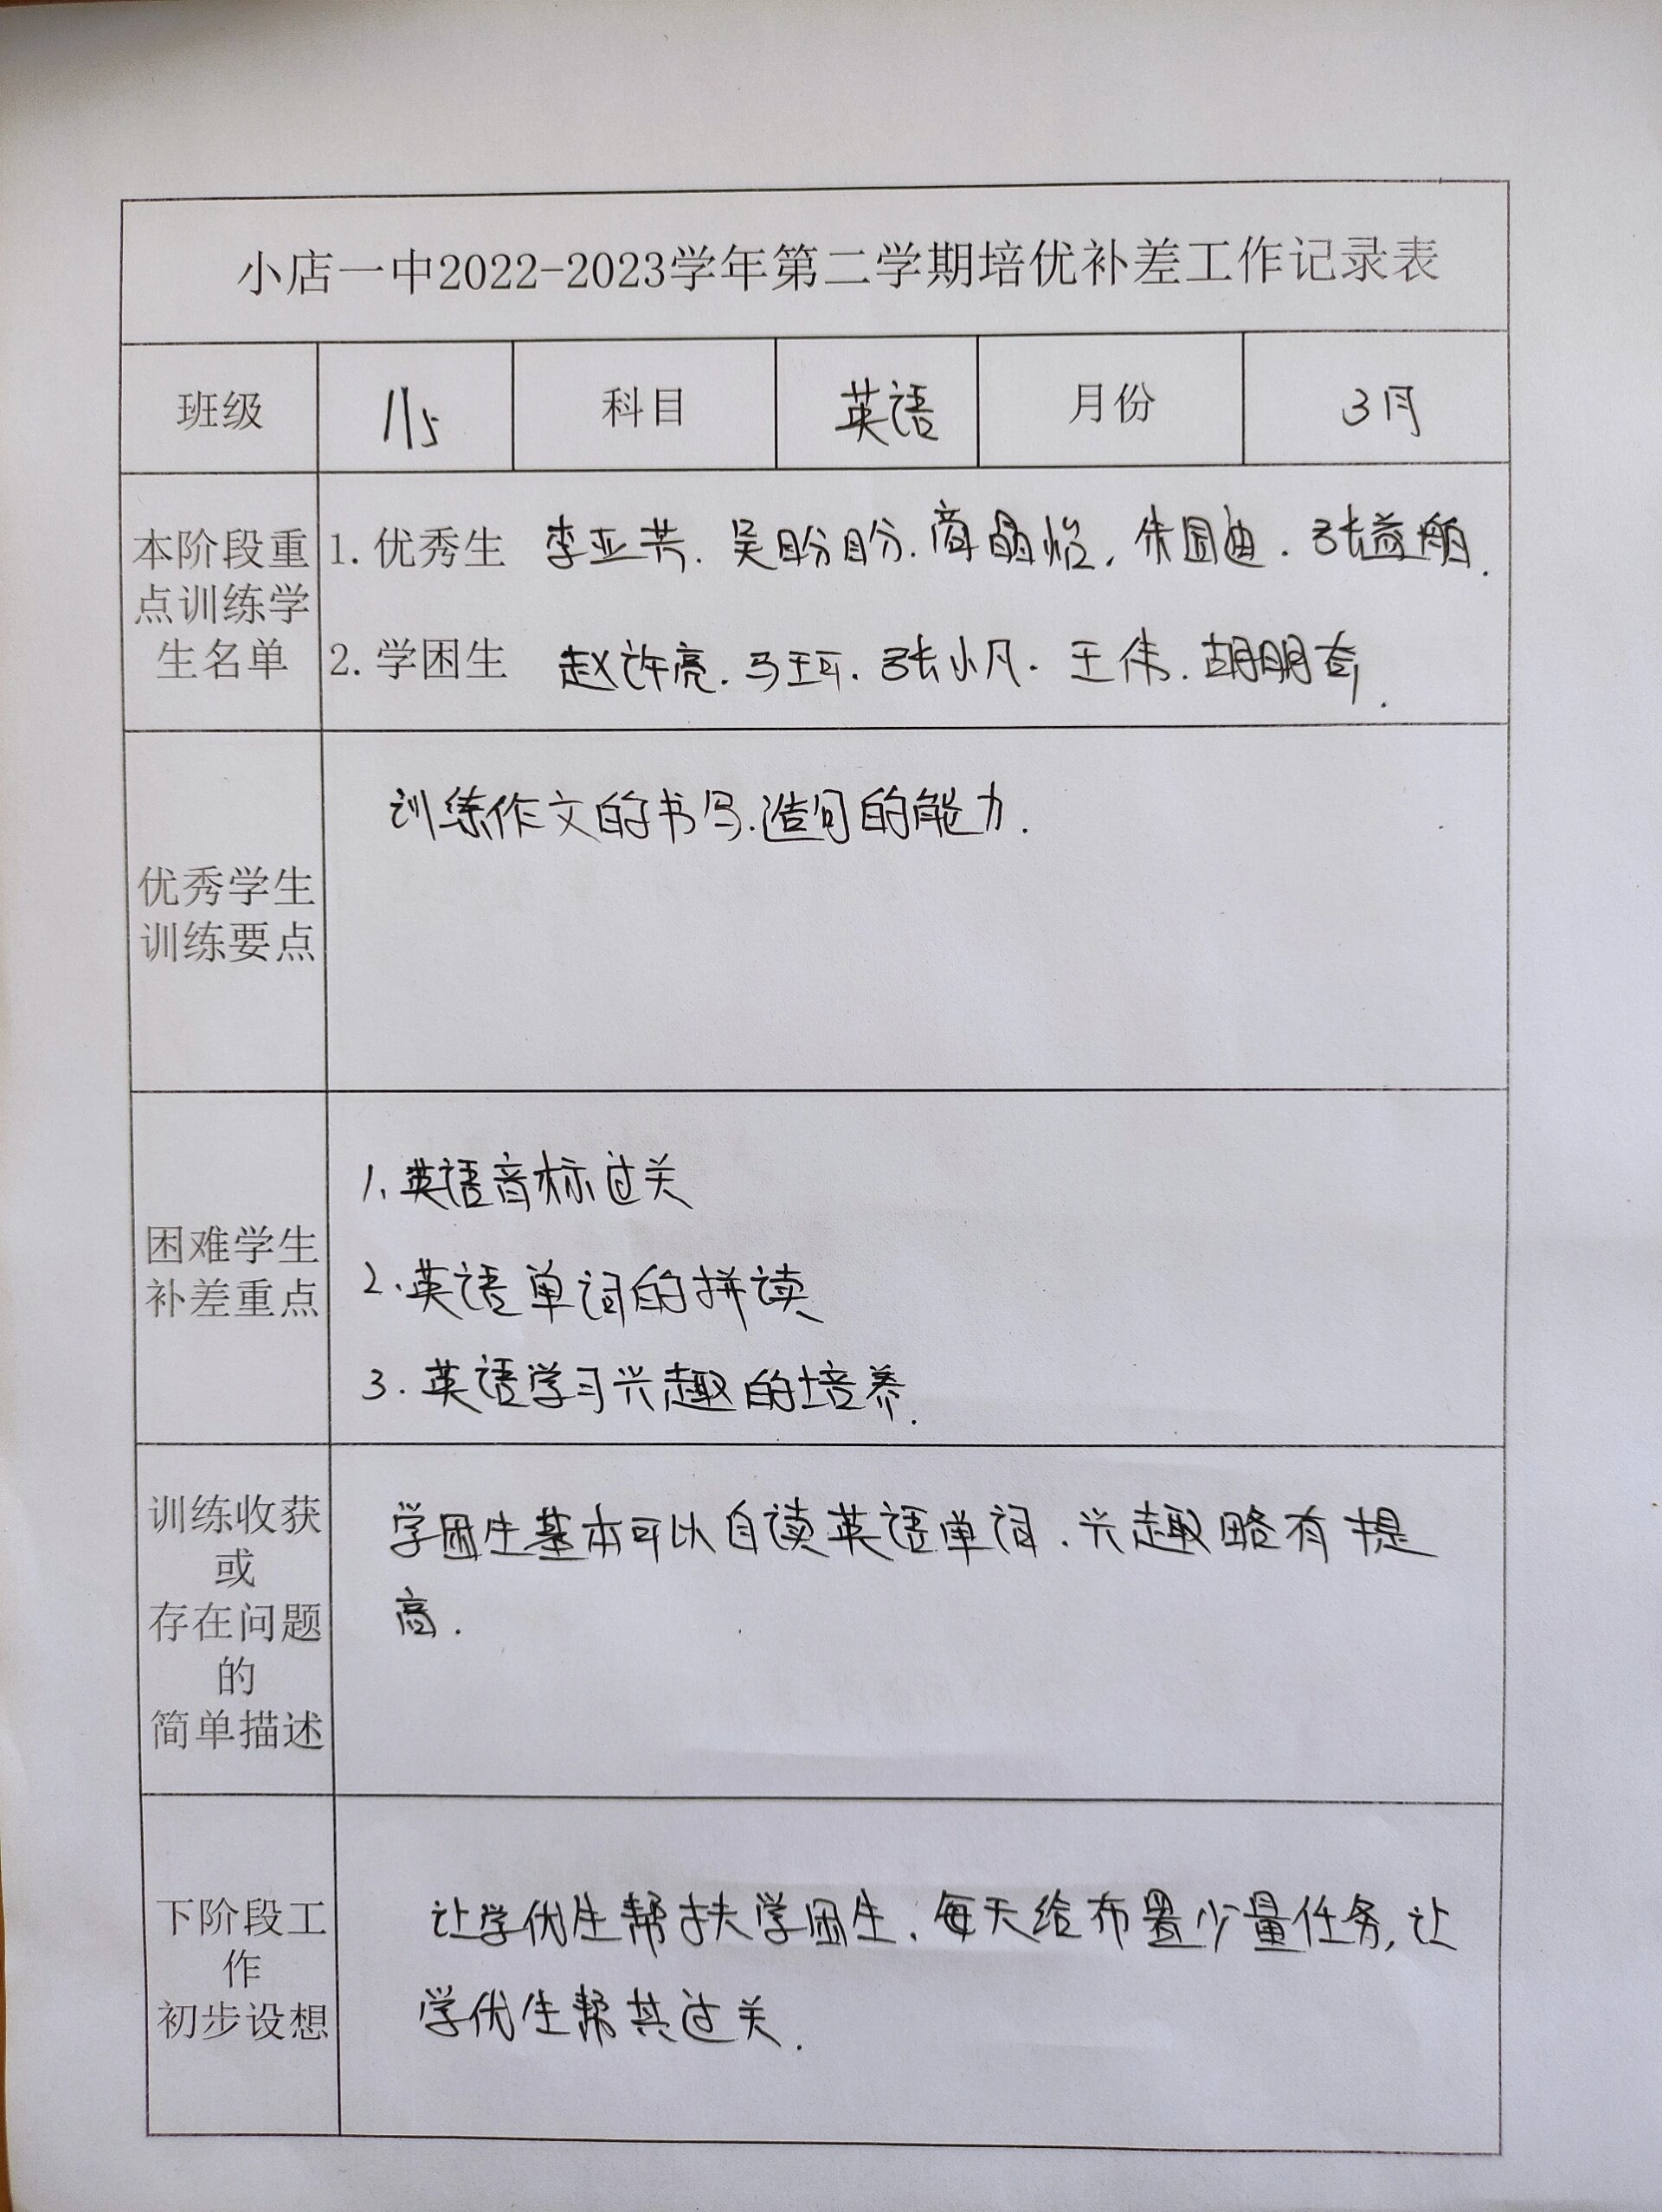 小店一中2022-2023学年第二学期培优补差工作记录表
班级 115 科目 英语 月份 3月
本阶段重点训练学生名单
1. 优秀生 李亚芳. 吴盼盼. 商晶怡. 朱圆迪. 张益舶.
2. 学困生 赵许亮. 马珂. 张小凡. 王伟. 胡朋奇.
优秀学生
训练要点
训练作文的书写.造句的能力.
困难学生
补差重点
1、英语音标过关
2.英语单词的拼读
3.英语学习兴趣的培养.
训练收获
或
存在问题
的
简单描述
学困生基本可以自读英语单词.兴趣略有提
高.
下阶段工
作
初步设想
让学优生帮扶学困生.每天给布置少量任务,让
学优生帮其过关.